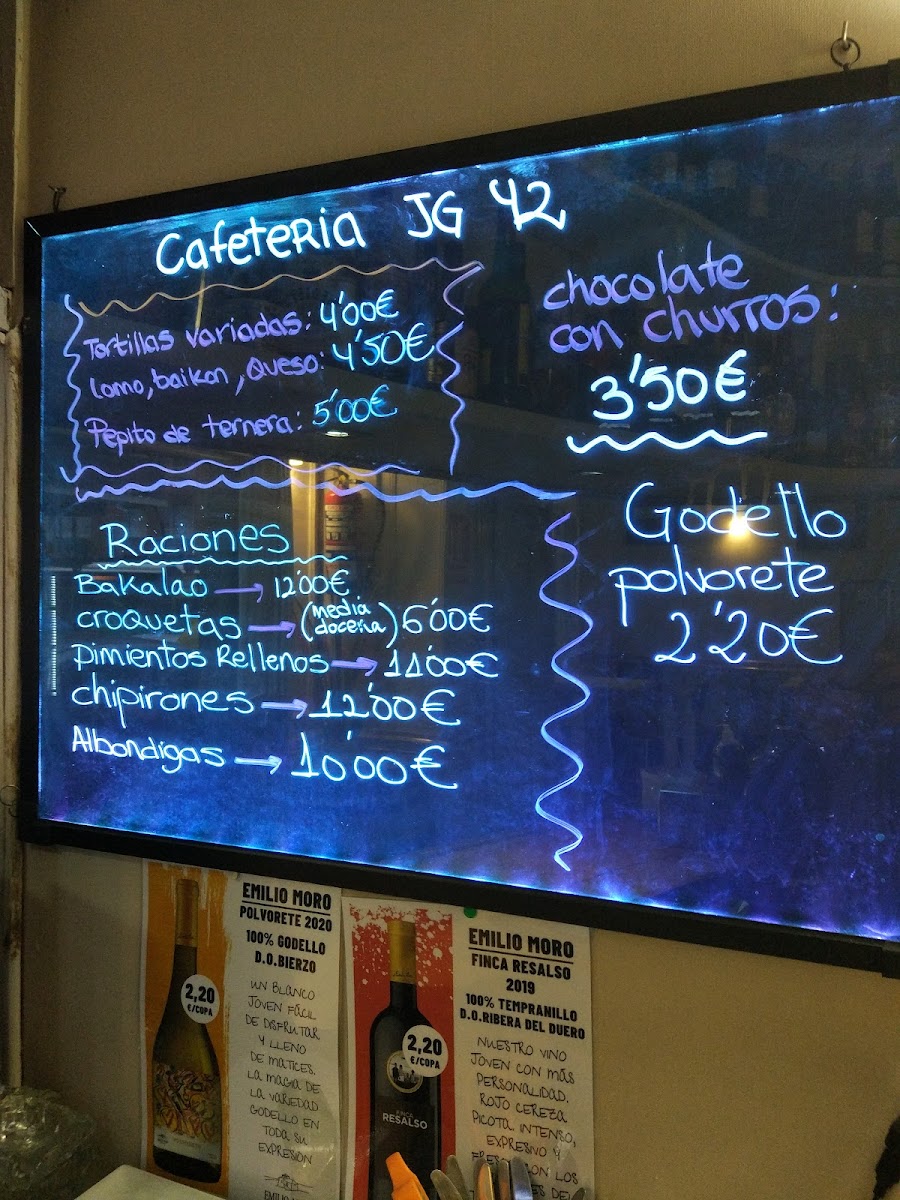 Cafeteria JG 42
Tortillas variadas: 4'00€
lomo, baikon, Queso: 4'50€
Pepito de ternera: 5'00€
chocolate
con churros:
3'50€
Raciones
Bakalao → 12'00€
croquetas → (media docena) 6'00€
pimientos Rellenos → 11'00€
chipirones → 12'00€
Albondigas → 10'00€
Godello
polvorete
2'20€
EMILIO MORO
POLVORETE 2020
100% GODELLO
D.O.BIERZO
UN BLANCO
JOVEN FÁCIL
DE DISFRUTAR
Y LLENO
DE MATICES.
LA MAGIA DE
LA VARIEDAD
GODELLO EN
TODA SU
EXPRESIÓN
EMILIO
2,20
€/COPA
EMILIO MORO
FINCA RESALSO
2019
100% TEMPRANILLO
D.O.RIBERA DEL DUERO
NUESTRO VINO
JOVEN CON MÁS
PERSONALIDAD.
ROJO CEREZA
PICOTA INTENSO,
EXPRESIVO Y
CON LOS
2,20
€/COPA
FINCA
RESALSO